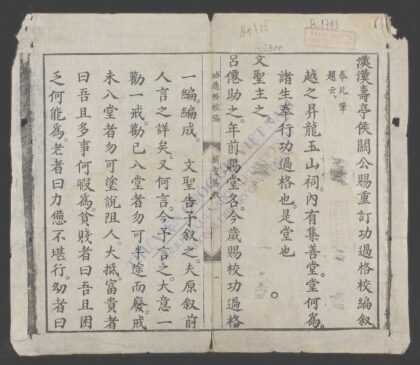 漢漢壽亭侯關公賜重訂功過格校編叙
奉乩筆
題云
越之昇龍玉山祠。內有集善堂。堂何為。
諸生奉行功過格也。是堂也
文聖主之。
呂僊助之。年前賜堂名。今歲賜校功過格
一編。編成。 文聖告予叙之。夫原叙前
人言之詳矣。又何言。今予言之。大意一
勸一戒。勸已入堂者勿可半途而廢。戒
未入堂者勿可塗說阻人。大抵富貴者
曰吾且多事何暇為。貧賤者曰吾且困
乏何能為。老者曰力憊不堪行。幼者曰
功過格校編
一
R.1743